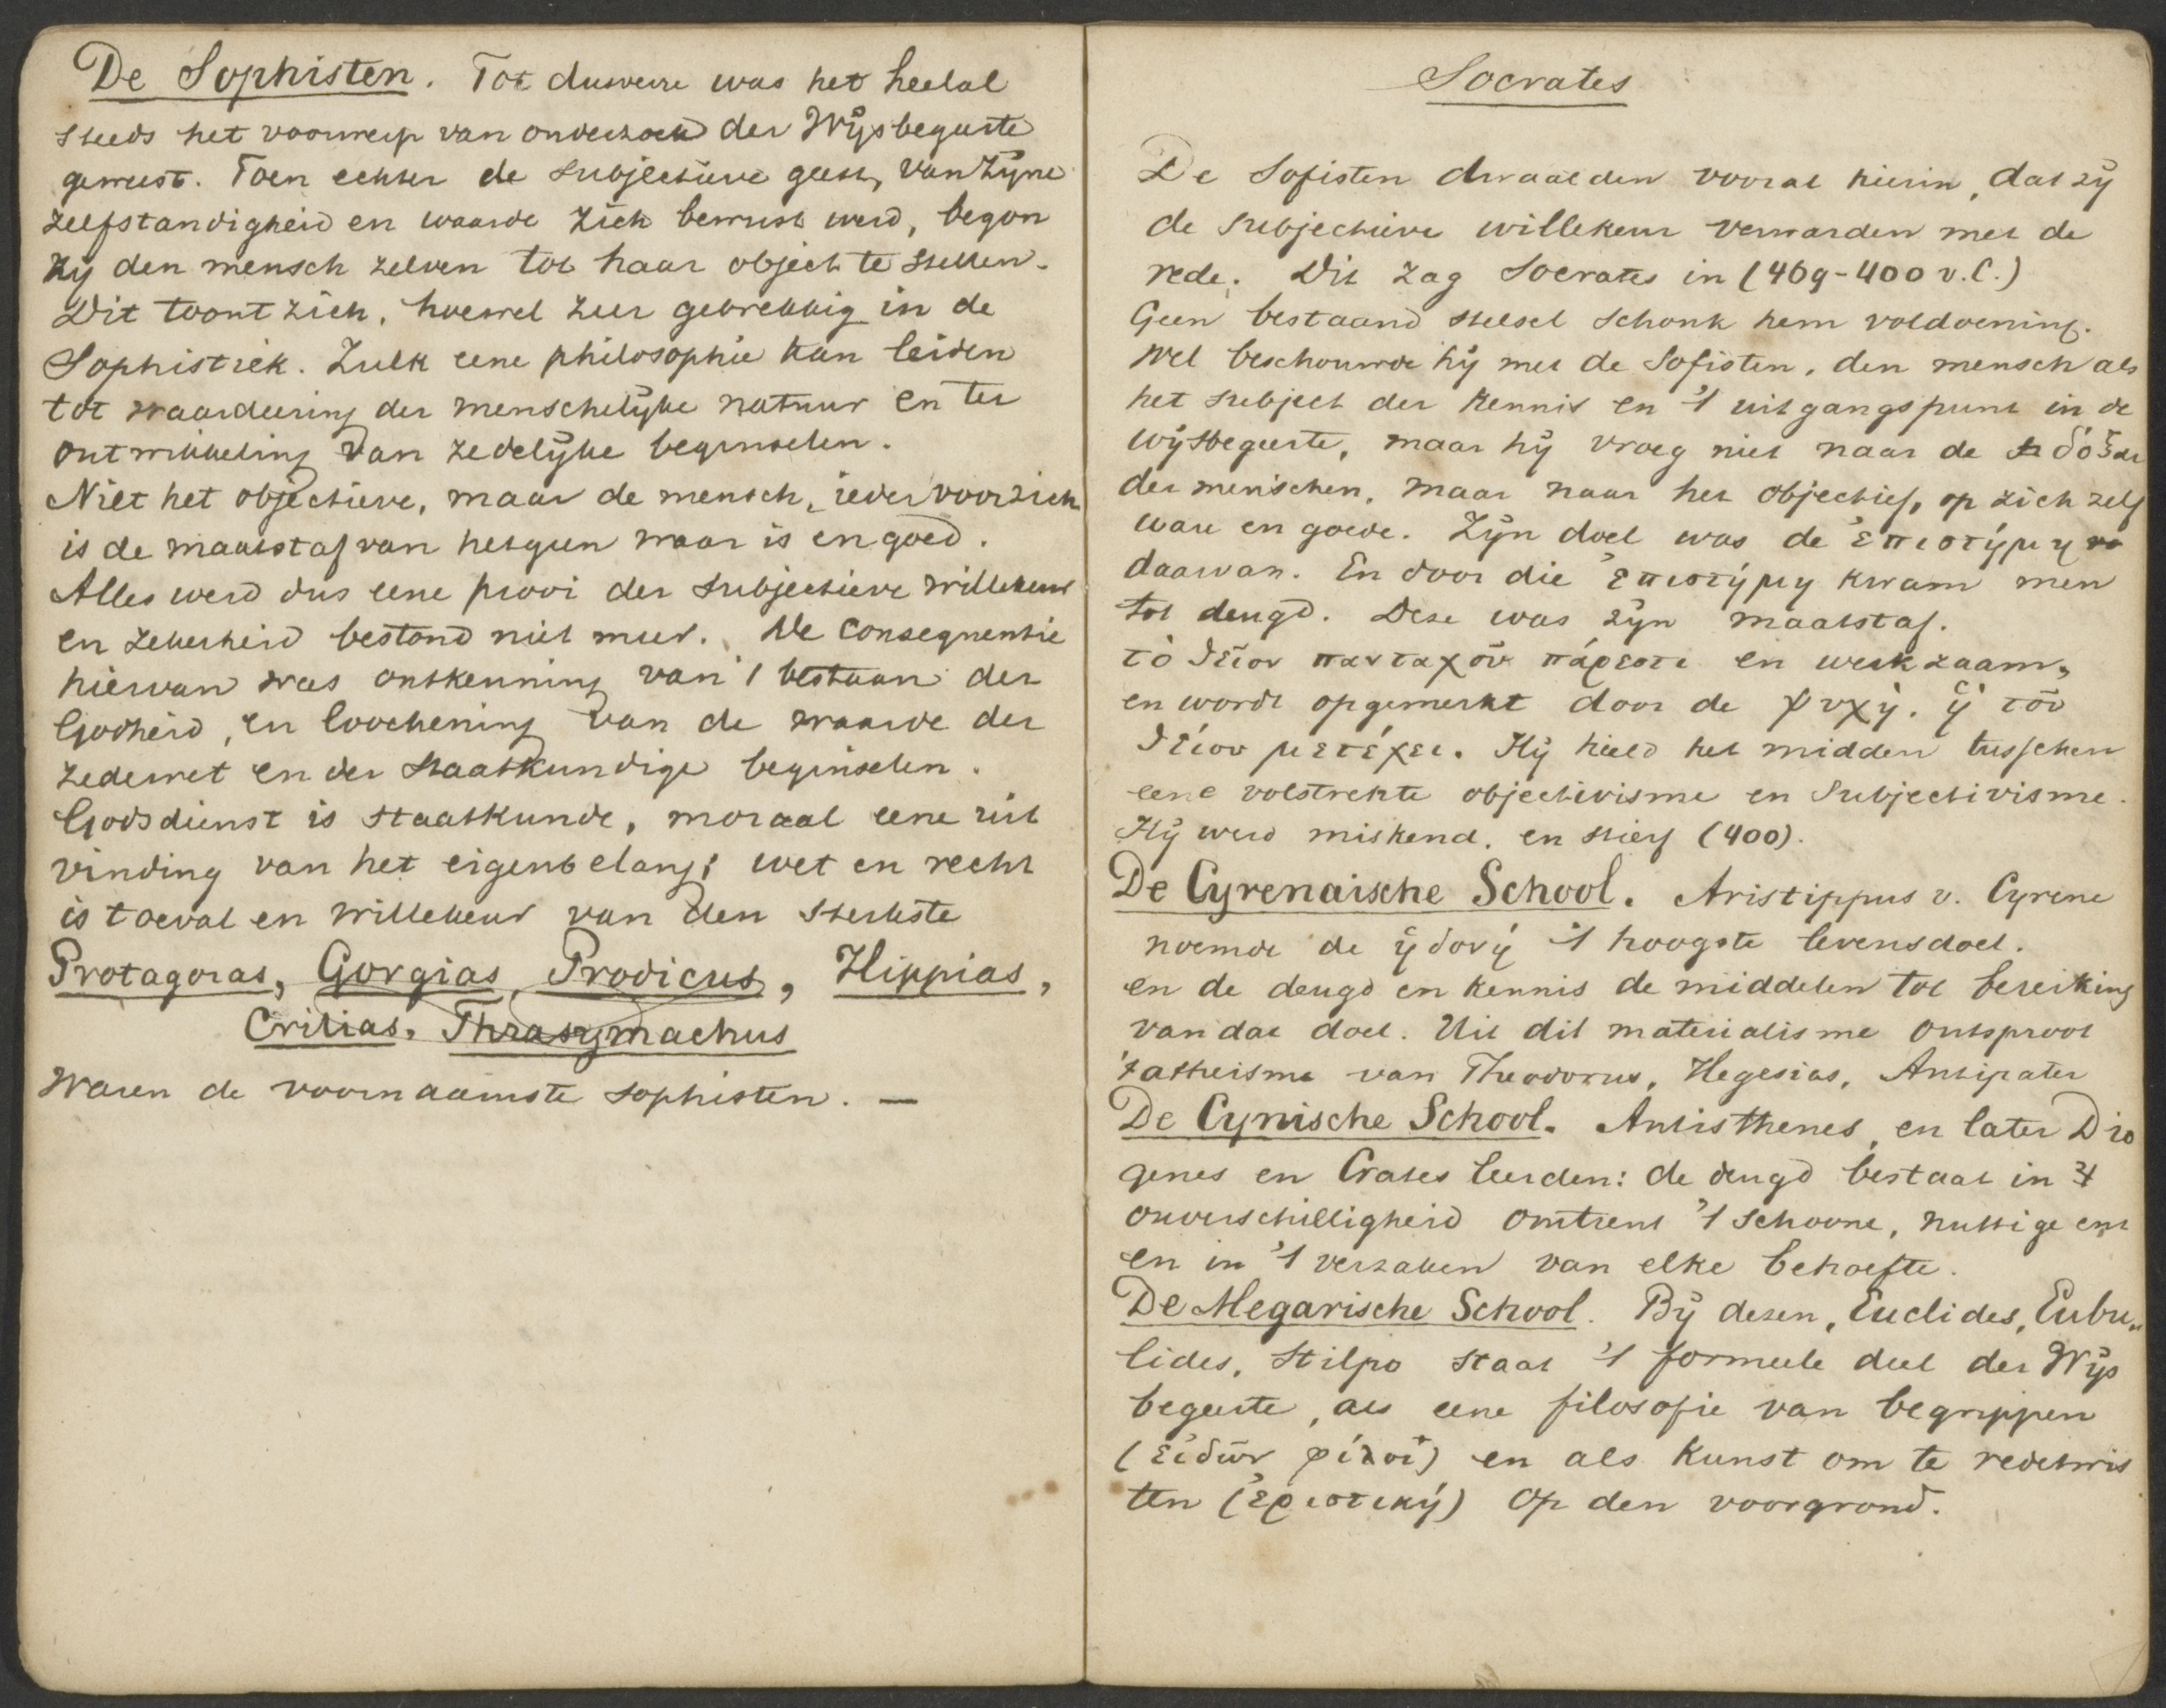 De Sophisten. Tot dusverre was het heelal
steeds het voorwerp van onderzoek der Wijsbegeerte
geweest. Toen echter de subjectieve geest, van zijne
zelfstandigheid en waarde zich bewust werd, begon
hij den mensch zelven tot haar object te stellen.
Dit toont zich, hoewel zeer gebrekkig in de
Sophistiek. Zulk eene philosophie kan leiden
tot waardeering der menschelijke natuur en ter
ontwikkeling van zedelijke beginselen.
Niet het objectieve, maar de mensch, ieder voor zich
is de maatstaf van hetgeen waar is en goed.
Alles werd dus eene prooi der subjectieve willekeur
en zekerheid bestond niet meer. De consequentie
hiervan was ontkenning van 't bestaan der
Godheid, en loochening van de waarde der
zedewet en der staatkundige beginselen.
Godsdienst is staatkunde, moraal eene uit
vinding van het eigenbelang; wet en recht
is toeval en willekeur van den sterkste
Protagoras, Gorgias, Prodicus, Hippias,
Critias, Thrasymachus
Waren de voornaamste sophisten. —
Socrates
De Sofisten dwaalden vooral hierin, dat zij
de subjectieve willekeur verwarden met de
rede. Dit zag Socrates in (469-400 v.C.)
Geen bestaand stelsel schonk hem voldoening.
Wel beschouwde hij met de Sofisten, den mensch als
het subject der kennis en 't uitgangspunt in de
wijsbegeerte, maar hij vroeg niet naar de δόξαι
der menschen, maar naar het objectief, op zich zelf
ware en goede. Zijn doel was de ἐπιστήμη
daarvan. En door die ἐπιστήμη kwam men
tot deugd. Deze was zijn maatstaf.
τὸ θεῖον πανταχοῦ πάρεστι en werkzaam,
en wordt opgemerkt door de ψυχή. ἡ τοῦ
θείου μετέχει. Hij hield het midden tusschen
eene volstrekte objectivisme en Subjectivisme.
Hij werd miskend, en stierf (400).
De Cyrenaische School. Aristippus v. Cyrene
noemde de ἡδονή 't hoogste levensdoel.
en de deugd en kennis de middelen tot bereiking
van dat doel. Uit dit materialisme ontsproot
't atheisme van Theodorus, Hegesias, Antipater
De Cynische School. Antisthenes, en later Dio
genes en Crates leerden: de deugd bestaat in 't
onverschilligheid omtrent 't schoone, nuttige enz
en in 't verzaken van elke behoefte.
De Megarische School. Bij dezen, Euclides, Eubu„
lides, Stilpo staat 't formeele deel der Wijs
begeerte, als eene filosofie van begrippen
(εἰδῶν φίλοι) en als kunst om te redetwis
ten (ἐριστική) op den voorgrond.